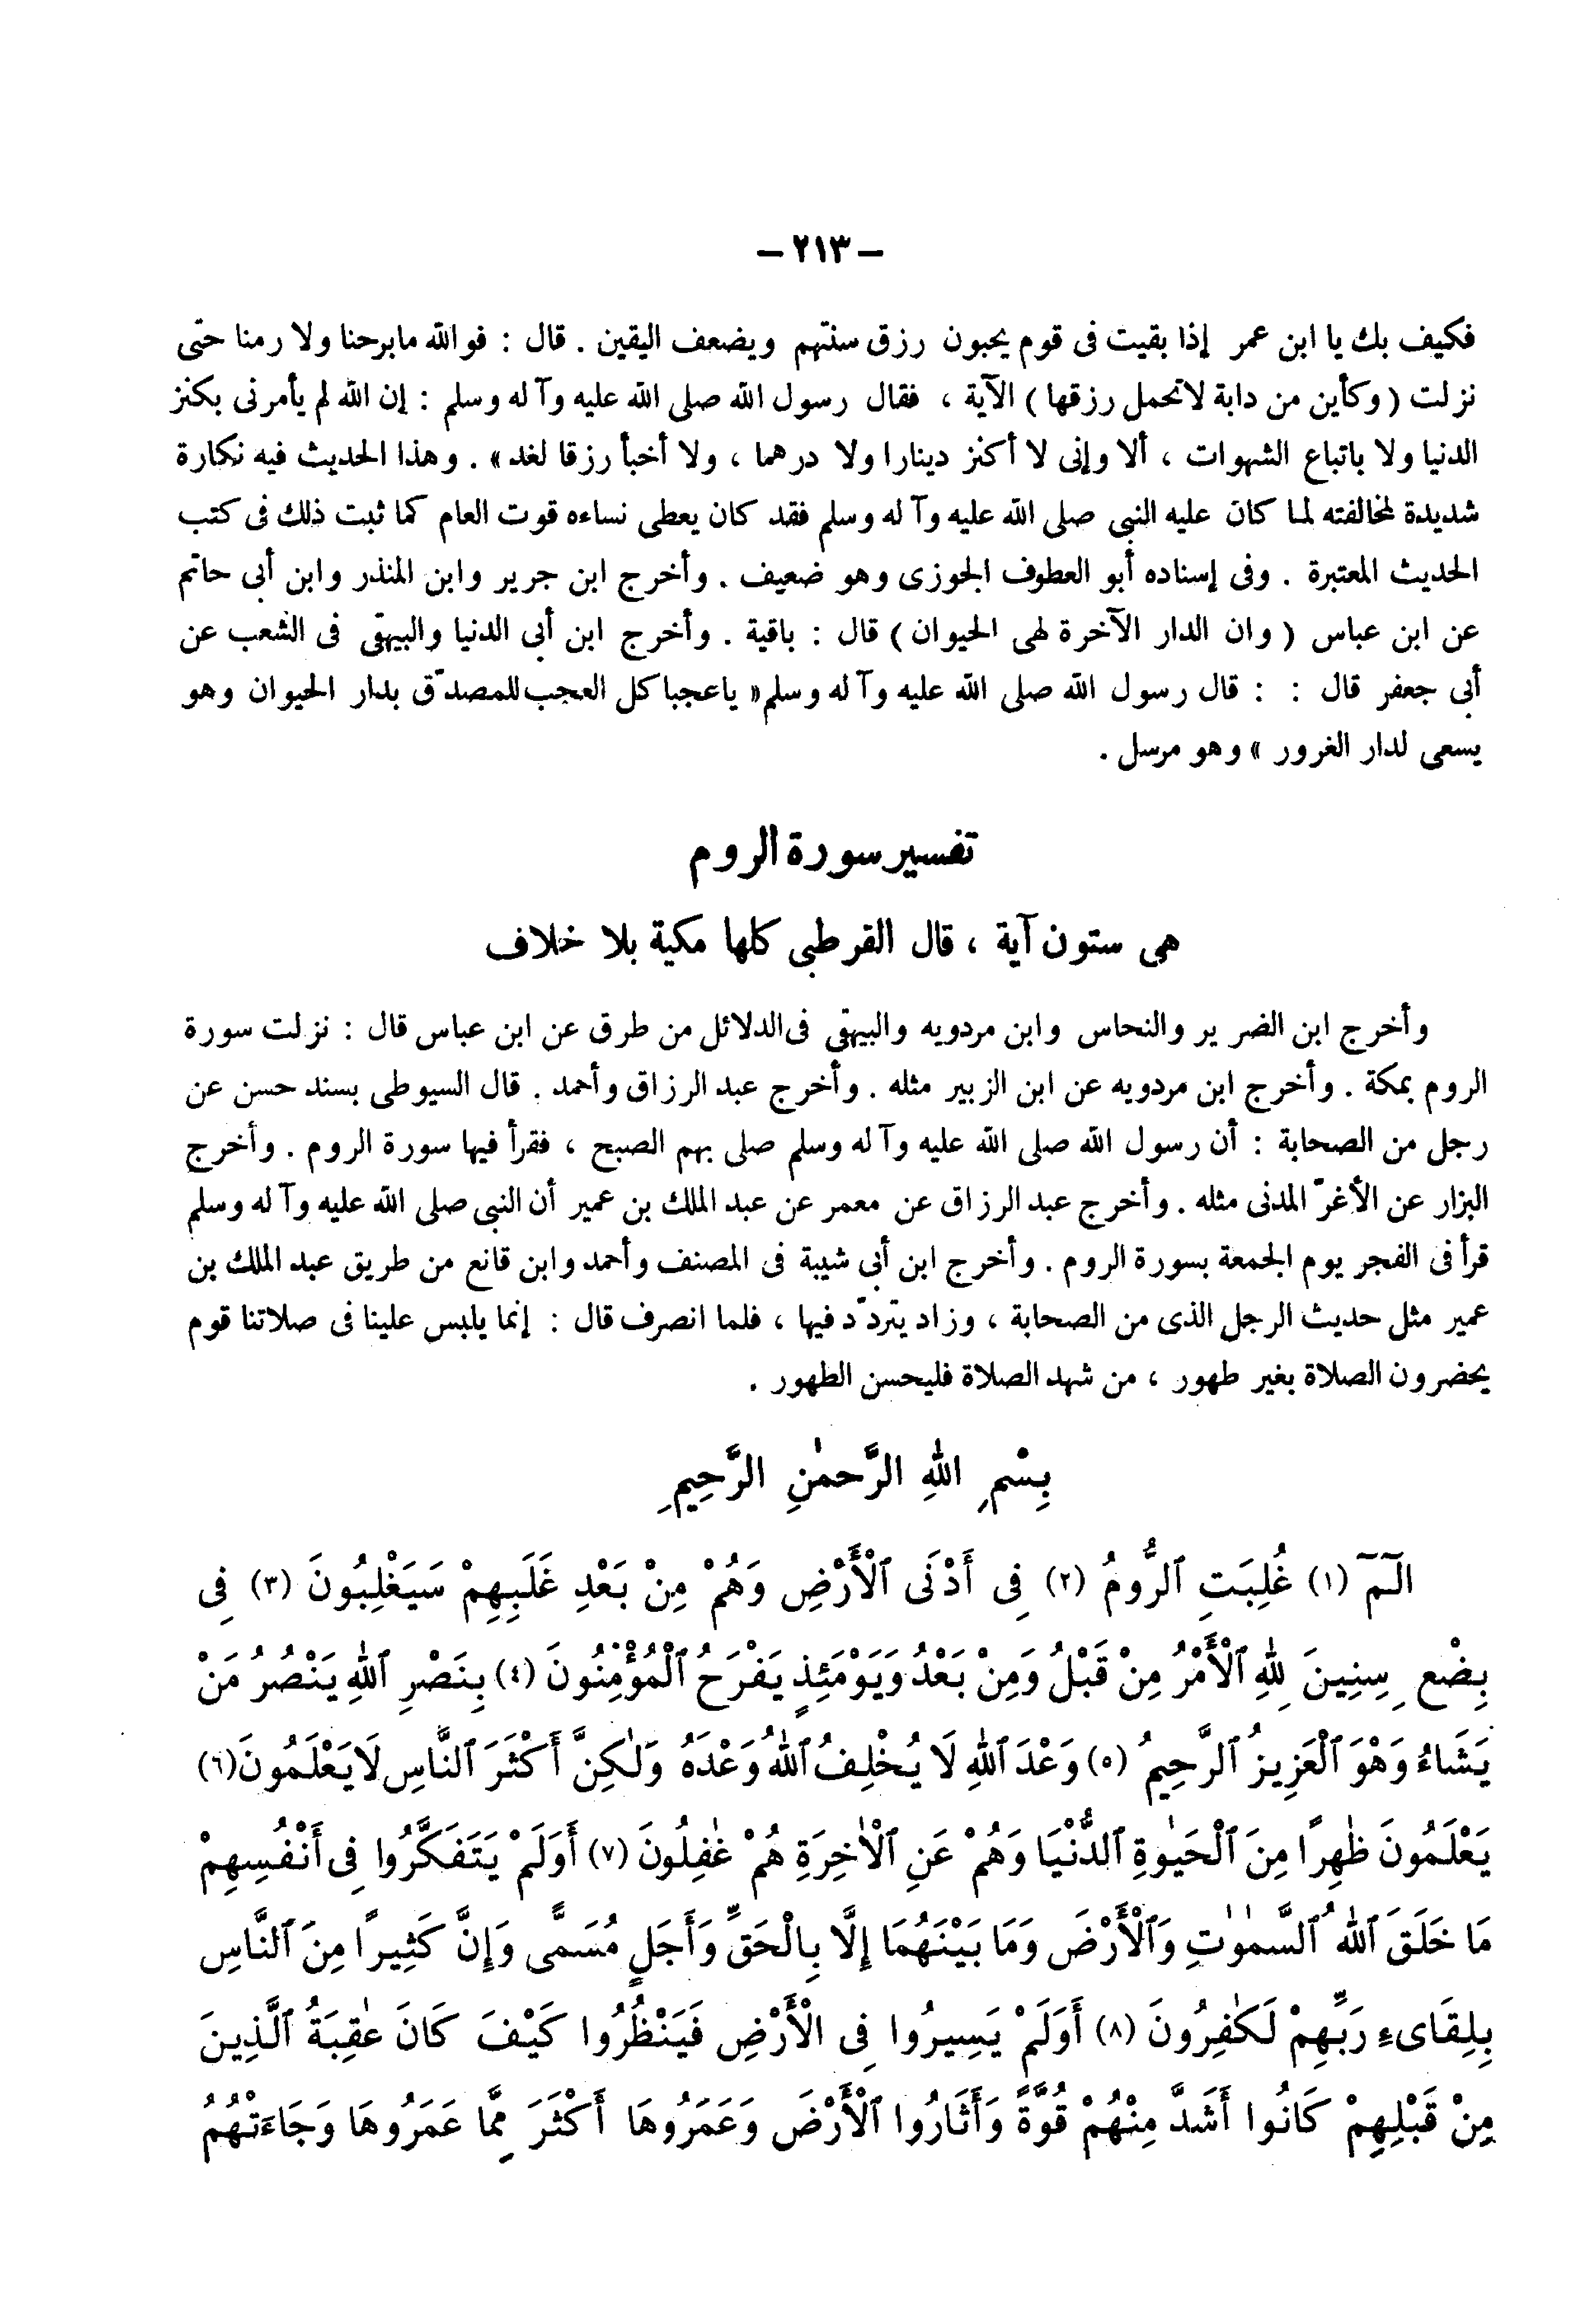 – ٢١٣ –
فكيف بك يا ابن عمر إذا بقيت فى قوم يحبون رزق سنتهم ويضعف اليقين . قال : فوالله مابرحنا ولا رمنا حتى
نزلت ( وكأين من دابة لاتحمل رزقها ) الآية ، فقال رسول الله صلى الله عليه وآله وسلم : إن الله لم يأمرنى بكنز
الدنيا ولا باتباع الشهوات ، ألا وإنى لا أكنز دينارا ولا درهما ، ولا أخبأ رزقا لغد » . وهذا الحديث فيه نكارة
شديدة لمخالفته لما كان عليه النبى صلى الله عليه وآله وسلم فقد كان يعطى نساءه قوت العام كما ثبت ذلك فى كتب
الحديث المعتبرة . وفى إسناده أبو العطوف الجوزى وهو ضعيف . وأخرج ابن جرير وابن المنذر وابن أبى حاتم
عن ابن عباس ( وان الدار الآخرة لهى الحيوان ) قال : باقية . وأخرج ابن أبى الدنيا والبيهقى فى الشعب عن
أبى جعفر قال : : قال رسول الله صلى الله عليه وآله وسلم « ياعجبا كل العجب للمصدّق بدار الحيوان وهو
يسعى لدار الغرور » وهو مرسل .
تفسير سورة الروم
هى ستون آية ، قال القرطبى كلها مكية بلا خلاف
وأخرج ابن الضريس والنحاس وابن مردويه والبيهقى فى الدلائل من طرق عن ابن عباس قال : نزلت سورة
الروم بمكة . وأخرج ابن مردويه عن ابن الزبير مثله . وأخرج عبد الرزاق وأحمد . قال السيوطى بسند حسن عن
رجل من الصحابة : أن رسول الله صلى الله عليه وآله وسلم صلى بهم الصبح ، فقرأ فيها سورة الروم . وأخرج
البزار عن الأغرّ المدنى مثله . وأخرج عبد الرزاق عن معمر عن عبد الملك بن عمير أن النبى صلى الله عليه وآله وسلم
قرأ فى الفجر يوم الجمعة بسورة الروم . وأخرج ابن أبى شيبة فى المصنف وأحمد وابن قانع من طريق عبد الملك بن
عمير مثل حديث الرجل الذى من الصحابة ، وزاد يتردّد فيها ، فلما انصرف قال : إنما يلبس علينا فى صلاتنا قوم
يحضرون الصلاة بغير طهور ، من شهد الصلاة فليحسن الطهور .
بِسْمِ اللهِ الرَّحمٰنِ الرَّحِيمِ
الٓمٓ (١) غُلِبَتِ ٱلرُّومُ (٢) فِى أَدْنَى ٱلْأَرْضِ وَهُمْ مِنْ بَعْدِ غَلَبِهِمْ سَيَغْلِبُونَ (٣) فِى
بِضْعِ سِنِينَ لِلهِ ٱلْأَمْرُ مِنْ قَبْلُ وَمِنْ بَعْدُ وَيَوْمَئِذٍ يَفْرَحُ ٱلْمُؤْمِنُونَ (٤) بِنَصْرِ ٱللهِ يَنْصُرُ مَنْ
يَشَاءُ وَهْوَ ٱلْعَزِيزُ ٱلرَّحِيمُ (٥) وَعْدَ ٱللهِ لَا يُخْلِفُ ٱللهُ وَعْدَهُ وَلٰكِنَّ أَكْثَرَ ٱلنَّاسِ لَايَعْلَمُونَ (٦)
يَعْلَمُونَ ظٰهِرًا مِنَ ٱلْحَيٰوةِ ٱلدُّنْيَا وَهُمْ عَنِ ٱلْاٰخِرَةِ هُمْ غٰفِلُونَ (٧) أَوَلَمْ يَتَفَكَّرُوا فِى أَنْفُسِهِمْ
مَا خَلَقَ ٱللهُ ٱلسَّمٰوٰتِ وَٱلْأَرْضَ وَمَا بَيْنَهُمَا إِلَّا بِالْحَقِّ وَأَجَلٍ مُسَمًّى وَإِنَّ كَثِيرًا مِنَ ٱلنَّاسِ
بِلِقَاىءِ رَبِّهِمْ لَكٰفِرُونَ (٨) أَوَلَمْ يَسِيرُوا فِى الْأَرْضِ فَيَنْظُرُوا كَيْفَ كَانَ عٰقِبَةُ ٱلَّذِينَ
مِنْ قَبْلِهِمْ كَانُوا أَشَدَّ مِنْهُمْ قُوَّةً وَأَثَارُوا ٱلْأَرْضَ وَعَمَرُوهَا أَكْثَرَ مِمَّا عَمَرُوهَا وَجَاءَتْهُمْ